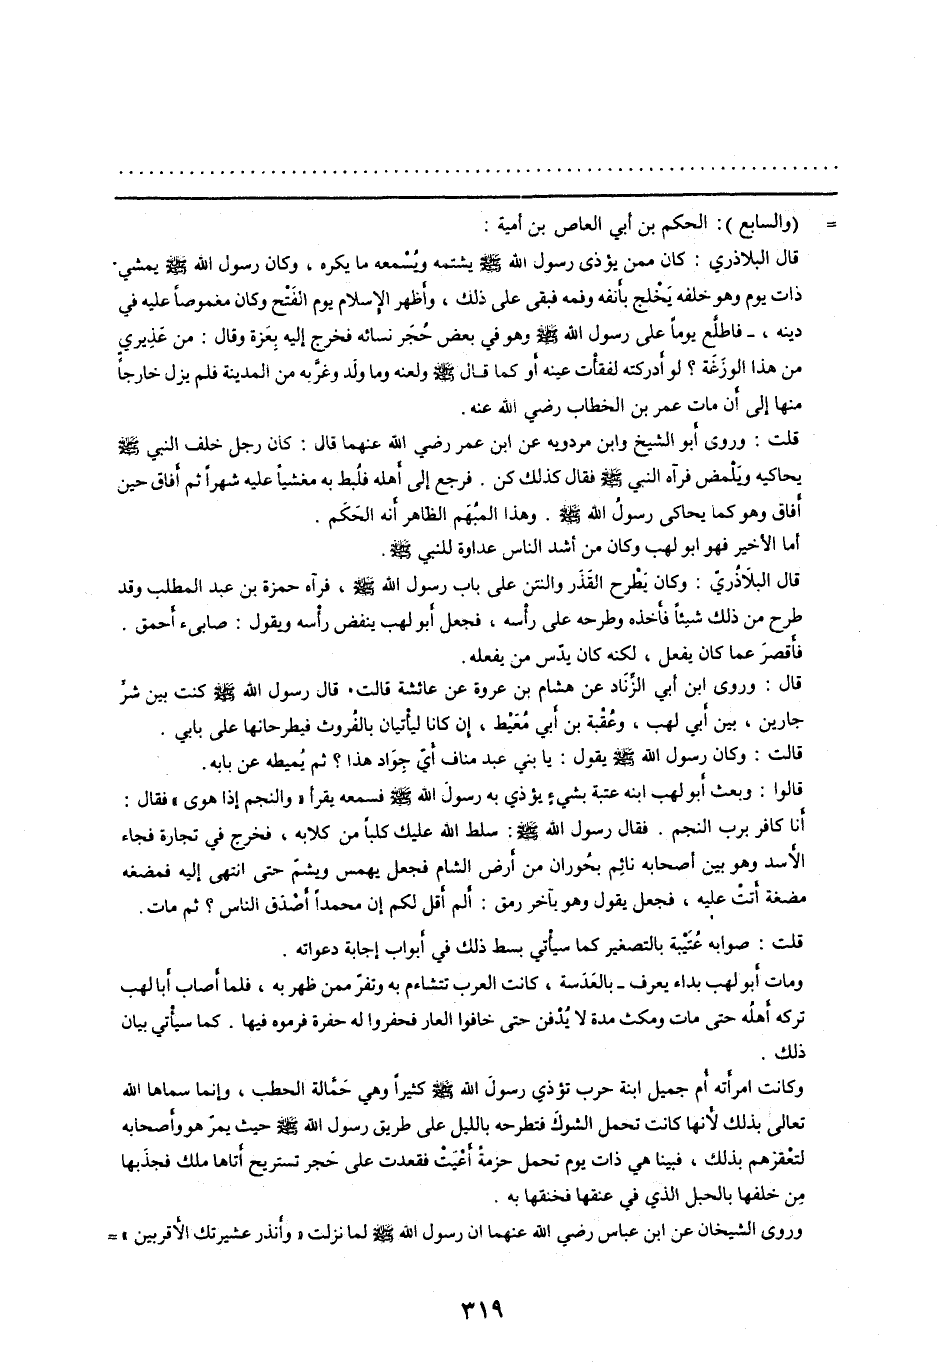 = (والسابع ): الحكم بن أبي العاص بن أمية :
قال البلاذري : كان ممن يؤذى رسول الله ﷺ يشتمه ويُسْمعه ما يكره ، وكان رسول الله ﷺ يمشي
ذات يوم وهو خلفه يَخْلج بأنفه وفمه فبقى على ذلك ، وأظهر الإسلام يوم الفَتْح وكان مغموصاً عليه في
دينه ، ـ فاطلَّع يوماً على رسول الله ﷺ وهو في بعض حُجَر نسائه فخرج إليه بِعَزة وقال : من عَذِيري
من هذا الوزَغَة ؟ لو أدركته لفقأت عينه أو كما قال ﷺ ولعنه وما ولَد وغرَّبه من المدينة فلم يزل خارجاً
منها إلى أن مات عمر بن الخطاب رضي الله عنه .
قلت : وروى أبو الشيخ وابن مردويه عن ابن عمر رضي الله عنهما قال : كان رجل خلف النبي ﷺ
يحاكيه ويَلْمض فرآه النبي ﷺ فقال كذلك كن . فرجع إلى أهله فلُبط به مغشياً عليه شهراً ثم أفاق حين
أفاق وهو كما يحاكى رسولُ الله ﷺ . وهذا المبُهَم الظاهر أنه الحَكَم .
أما الأخير فهو ابو لهب وكان من أشد الناس عداوة للنبي ﷺ .
قال البلَاذُريّ : وكان يَطْرح القَذَر والنتن على باب رسول الله ﷺ ، فرآه حمزة بن عبد المطلب وقد
طرح من ذلك شيئاً فأخذه وطرحه على رأسه ، فجعل أبو لهب ينفض رأسه ويقول : صابىء أحمق .
فأقصرَ عما كان يفعل ، لكنه كان يدّس من يفعله .
قال : وروى ابن أبي الزِّنَاد عن هشام بن عروة عن عائشة قالت . قال رسول الله ﷺ كنت بين شرَّ
جارين ، بين أبي لهب ، وعُقْبة بن أبي مُعَيْط ، إن كانا ليأتيان بالفُروث فيطرحانها على بابي .
قالت : وكان رسول الله ﷺ يقول : يا بني عبد مناف أيّ جِوَاد هذا ؟ ثم يُميطه عن بابه .
قالوا : وبعث أبو لهب ابنه عتبة بشيءٍ يؤذي به رسولَ الله ﷺ فسمعه يقرأ « والنجم إذا هوى » فقال :
أنا كافر برب النجم . فقال رسول الله ﷺ : سلط الله عليك كلباً من كلابه ، فخرج في تجارة فجاء
الأسد وهو بين أصحابه نائِم بحُوران من أرض الشام فجعل يهمس ويشمّ حتى انتهى إليه فمضغه
مضغة أتتْ عليه ، فجعل يقول وهو بآخر رمق : ألم أقل لكم إن محمداً أصْدَق الناس ؟ ثم مات .
قلت : صوابه عُتَيْبة بالتصغير كما سيأتي بسط ذلك في أبواب إجابة دعواته .
ومات أبو لهب بداء يعرف ـ بالعَدَسة ، كانت العرب تتشاءم به وتفرّ ممن ظهر به ، فلما أصاب أبا لهب
تركه أهلُه حتى مات ومكث مدة لا يُدْفن حتى خافوا العار فحفروا له حفرة فرموه فيها . كما سيأتي بيان
ذلك .
وكانت امرأته أم جميل ابنة حرب تؤذي رسولَ الله ﷺ كثيراً وهي حَمَّالة الحطب ، وإنما سماها الله
تعالى بذلك لأنها كانت تحمل الشوكَ فتطرحه بالليل على طريق رسول الله ﷺ حيث يمرّ هو وأصحابه
لتعْقِزهم بذلك ، فبينا هي ذات يوم تحمل حزمةً أعْيَتْ فقعدت على حَجر تستريح أتاها ملك فجذَبها
مِن خلفها بالحبل الذي في عنقها فخنقها به .
وروى الشيخان عن ابن عباس رضي الله عنهما ان رسول الله ﷺ لما نزلت « وأنذر عشيرتك الأقربين » =
٣١٩